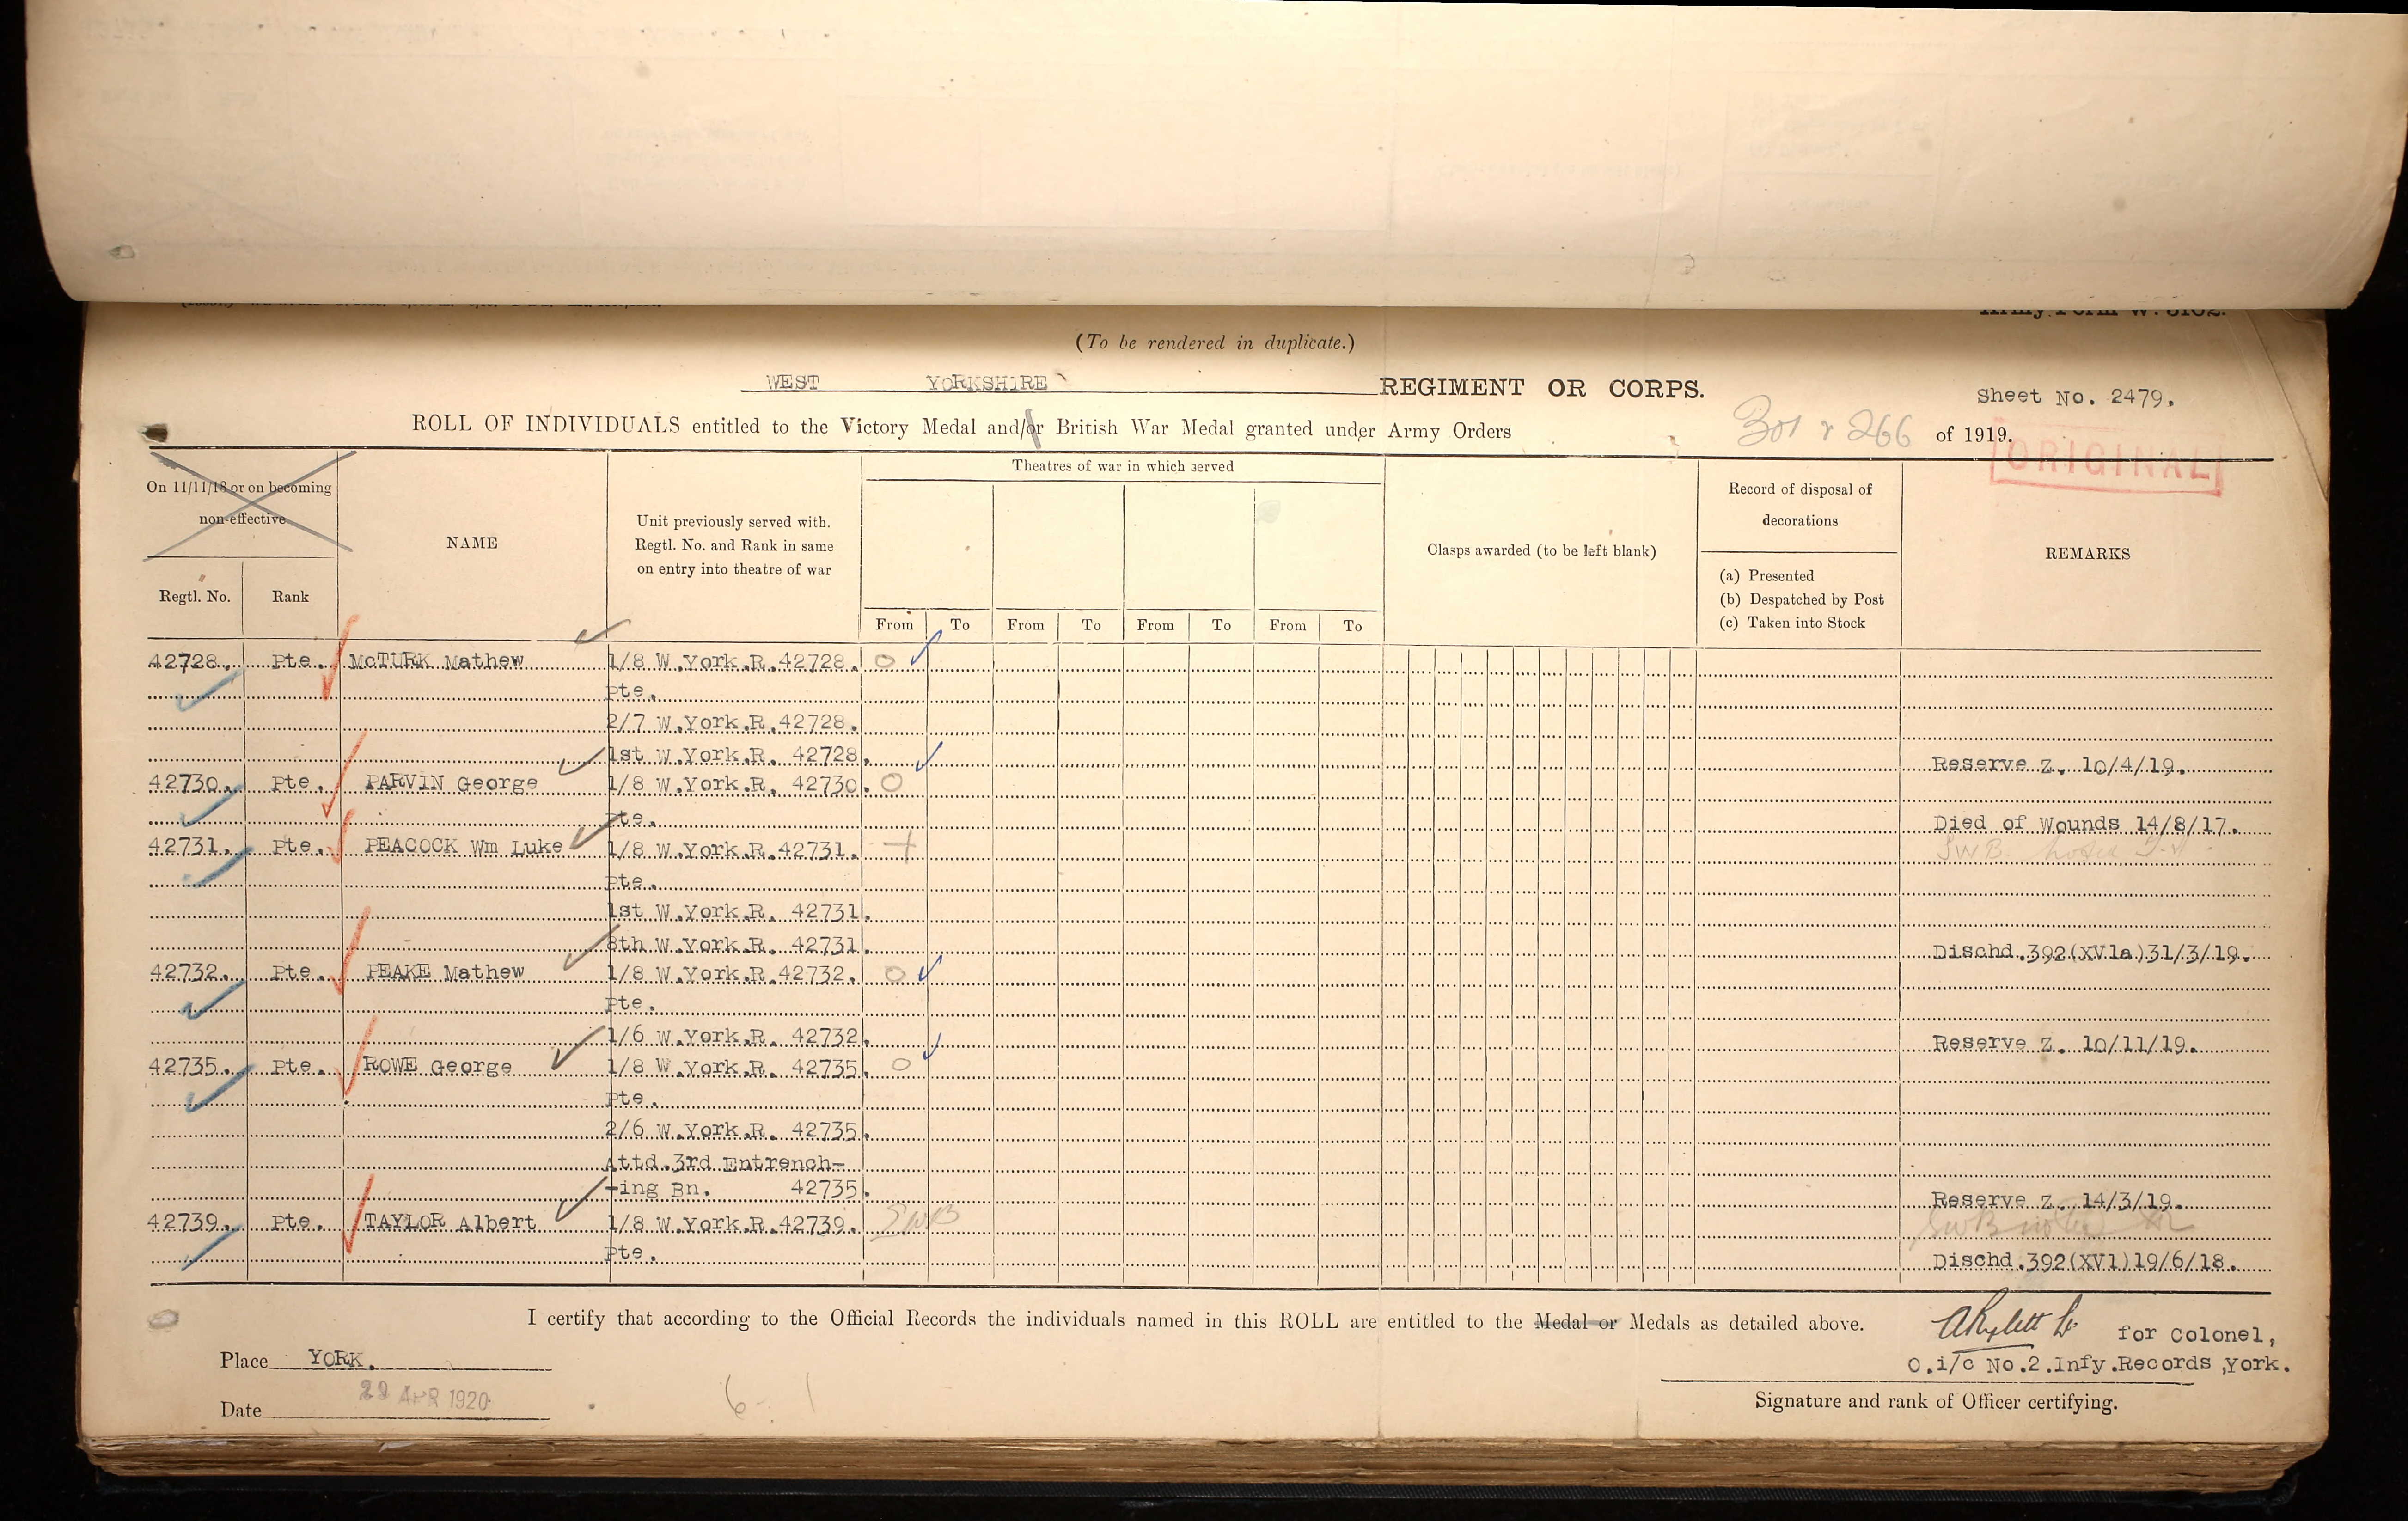 Army Form W. 5102.
(To be rendered in duplicate.)
WEST YORKSHIRE REGIMENT OR CORPS.
Sheet No. 2479.
ROLL OF INDIVIDUALS entitled to the Victory Medal and/or British War Medal granted under Army Orders 301 & 266 of 1919.
ORIGINAL
On 11/11/18 or on becoming
non-effective
Regtl. No. Rank
NAME
Unit previously served with.
Regtl. No. and Rank in same
on entry into theatre of war
Theatres of war in which served
From To From To From To From To
Clasps awarded (to be left blank)
Record of disposal of
decorations
(a) Presented
(b) Despatched by Post
(c) Taken into Stock
REMARKS
42728. Pte. McTURK Mathew 1/8 W.York.R.42728. O
Pte.
2/7 W.York.R.42728.
1st W.York.R. 42728. Reserve Z. 10/4/19.
42730. Pte. PARVIN George 1/8 W.York.R. 42730. O
Pte. Died of Wounds 14/8/17.
42731. Pte. PEACOCK Wm Luke 1/8 W.York.R.42731. + SWB.
Pte.
1st W.York.R. 42731.
8th W.York.R. 42731. Dischd.392(XV1a)31/3/19.
42732. Pte. PEAKE Mathew 1/8 W.York.R.42732. O
Pte.
1/6 W.York.R. 42732. Reserve Z. 10/11/19.
42735. Pte. ROWE George 1/8 W.York.R. 42735. O
Pte.
2/6 W.York.R. 42735.
Attd.3rd Entrench-
-ing Bn. 42735. Reserve Z. 14/3/19.
42739. Pte. TAYLOR Albert 1/8 W.York.R.42739. SWB SWB noted
Pte. Dischd.392(XV1)19/6/18.
I certify that according to the Official Records the individuals named in this ROLL are entitled to the Medal or Medals as detailed above.
for Colonel,
O.i/c No.2.Infy.Records,York.
Signature and rank of Officer certifying.
Place YORK.
Date 29 APR 1920
6-1